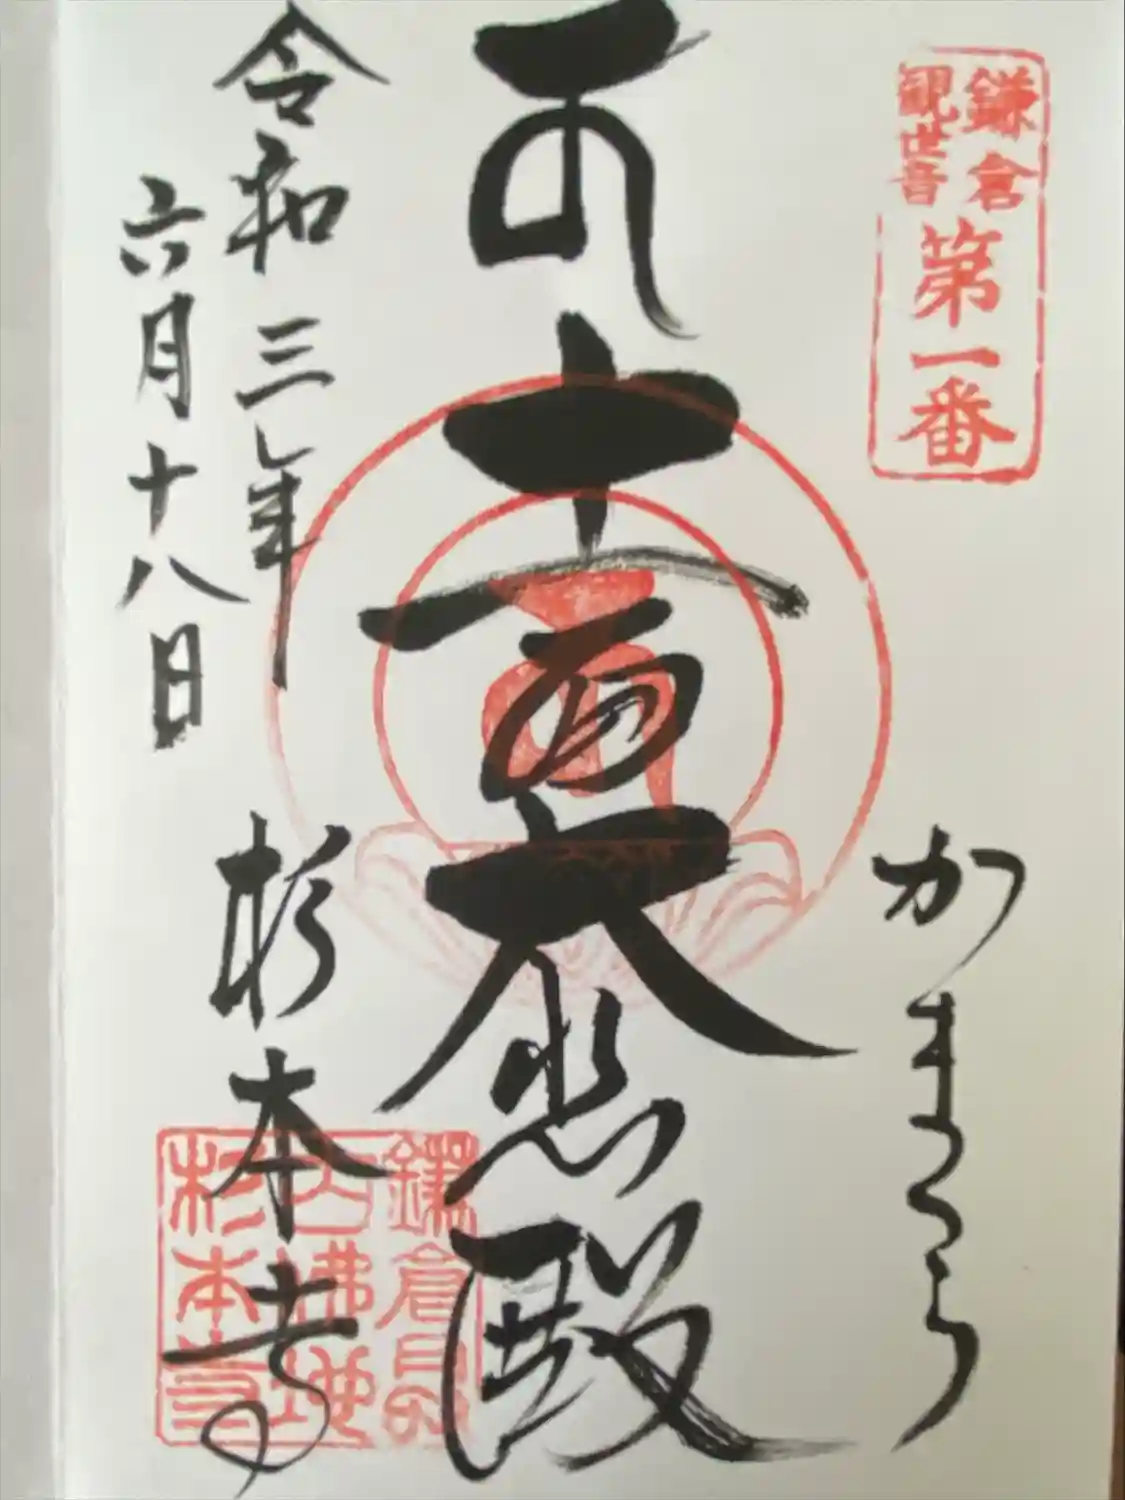 鎌倉
観世音
第一番
かまくら
十一面大悲殿
令和三年
六月十八日
杉本寺
杉本寺